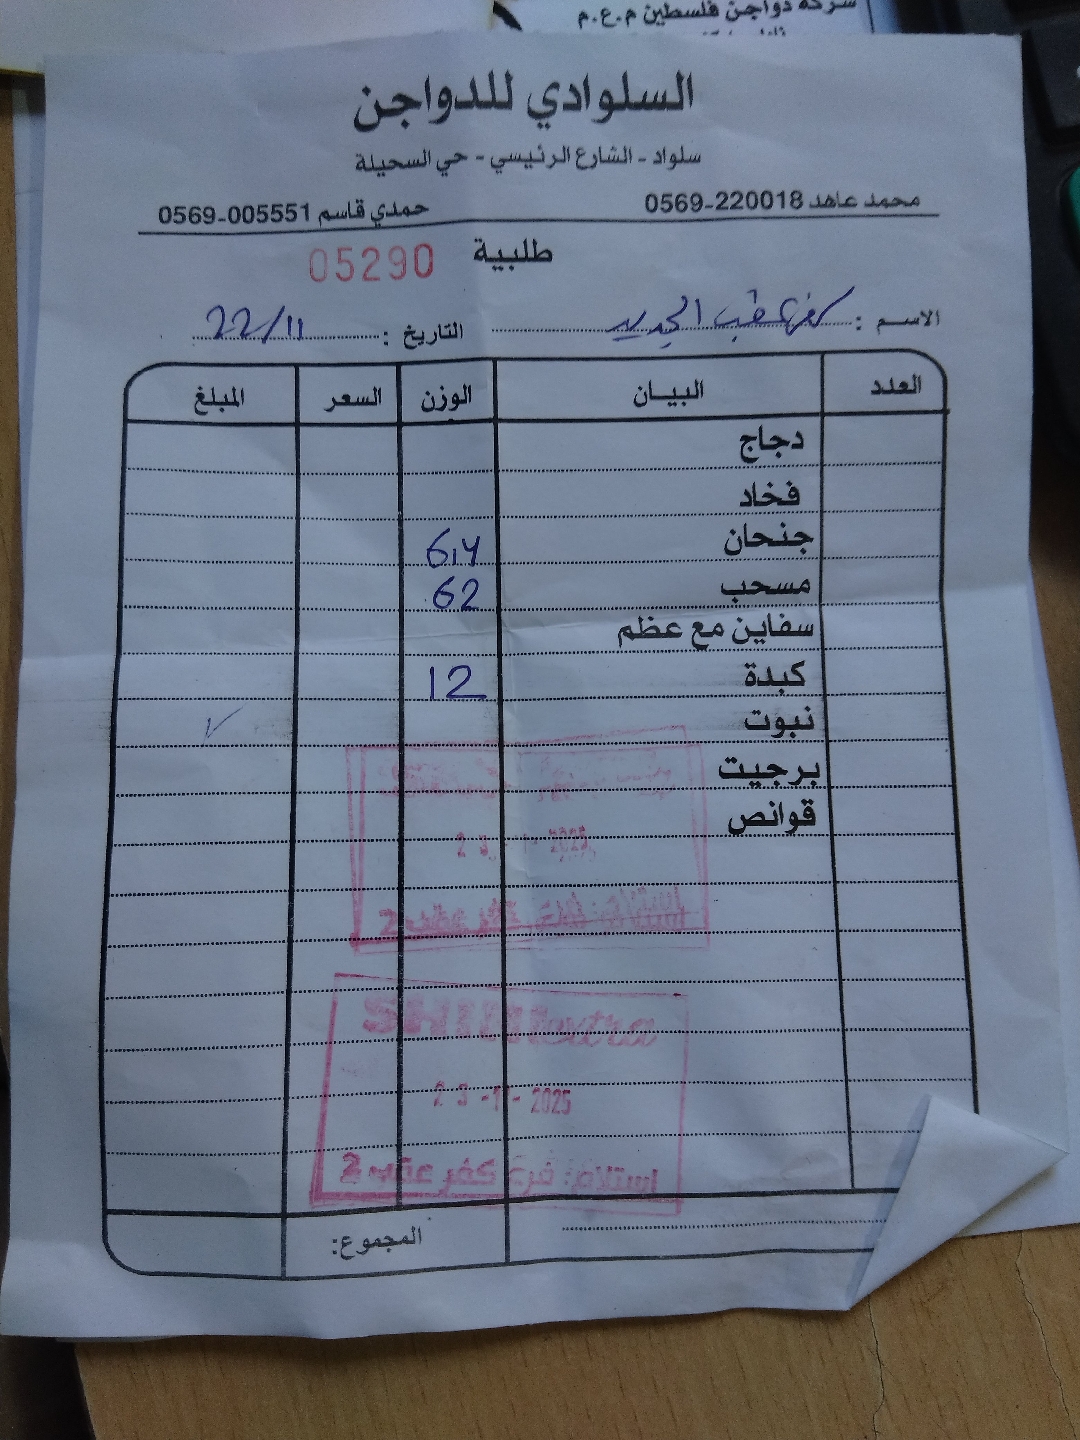 شركة دواجن فلسطين م.ع.م
السلوادي للدواجن
سلواد - الشارع الرئيسي - حي السحيلة
محمد عاهد 0569-220018 حمدي قاسم 0569-005551
طلبية 05290
الاسم : كفر عقب الجديد التاريخ : 22/11
العدد البيان الوزن السعر المبلغ
دجاج
فخاد
جنحان
مسحب 62
سفاين مع عظم
كبدة 12
نبوت
برجيت
قوانص
استلام: فرع كفر عقب 2
SHINI extra
23-11-2025
استلام: فرع كفر عقب 2
المجموع: